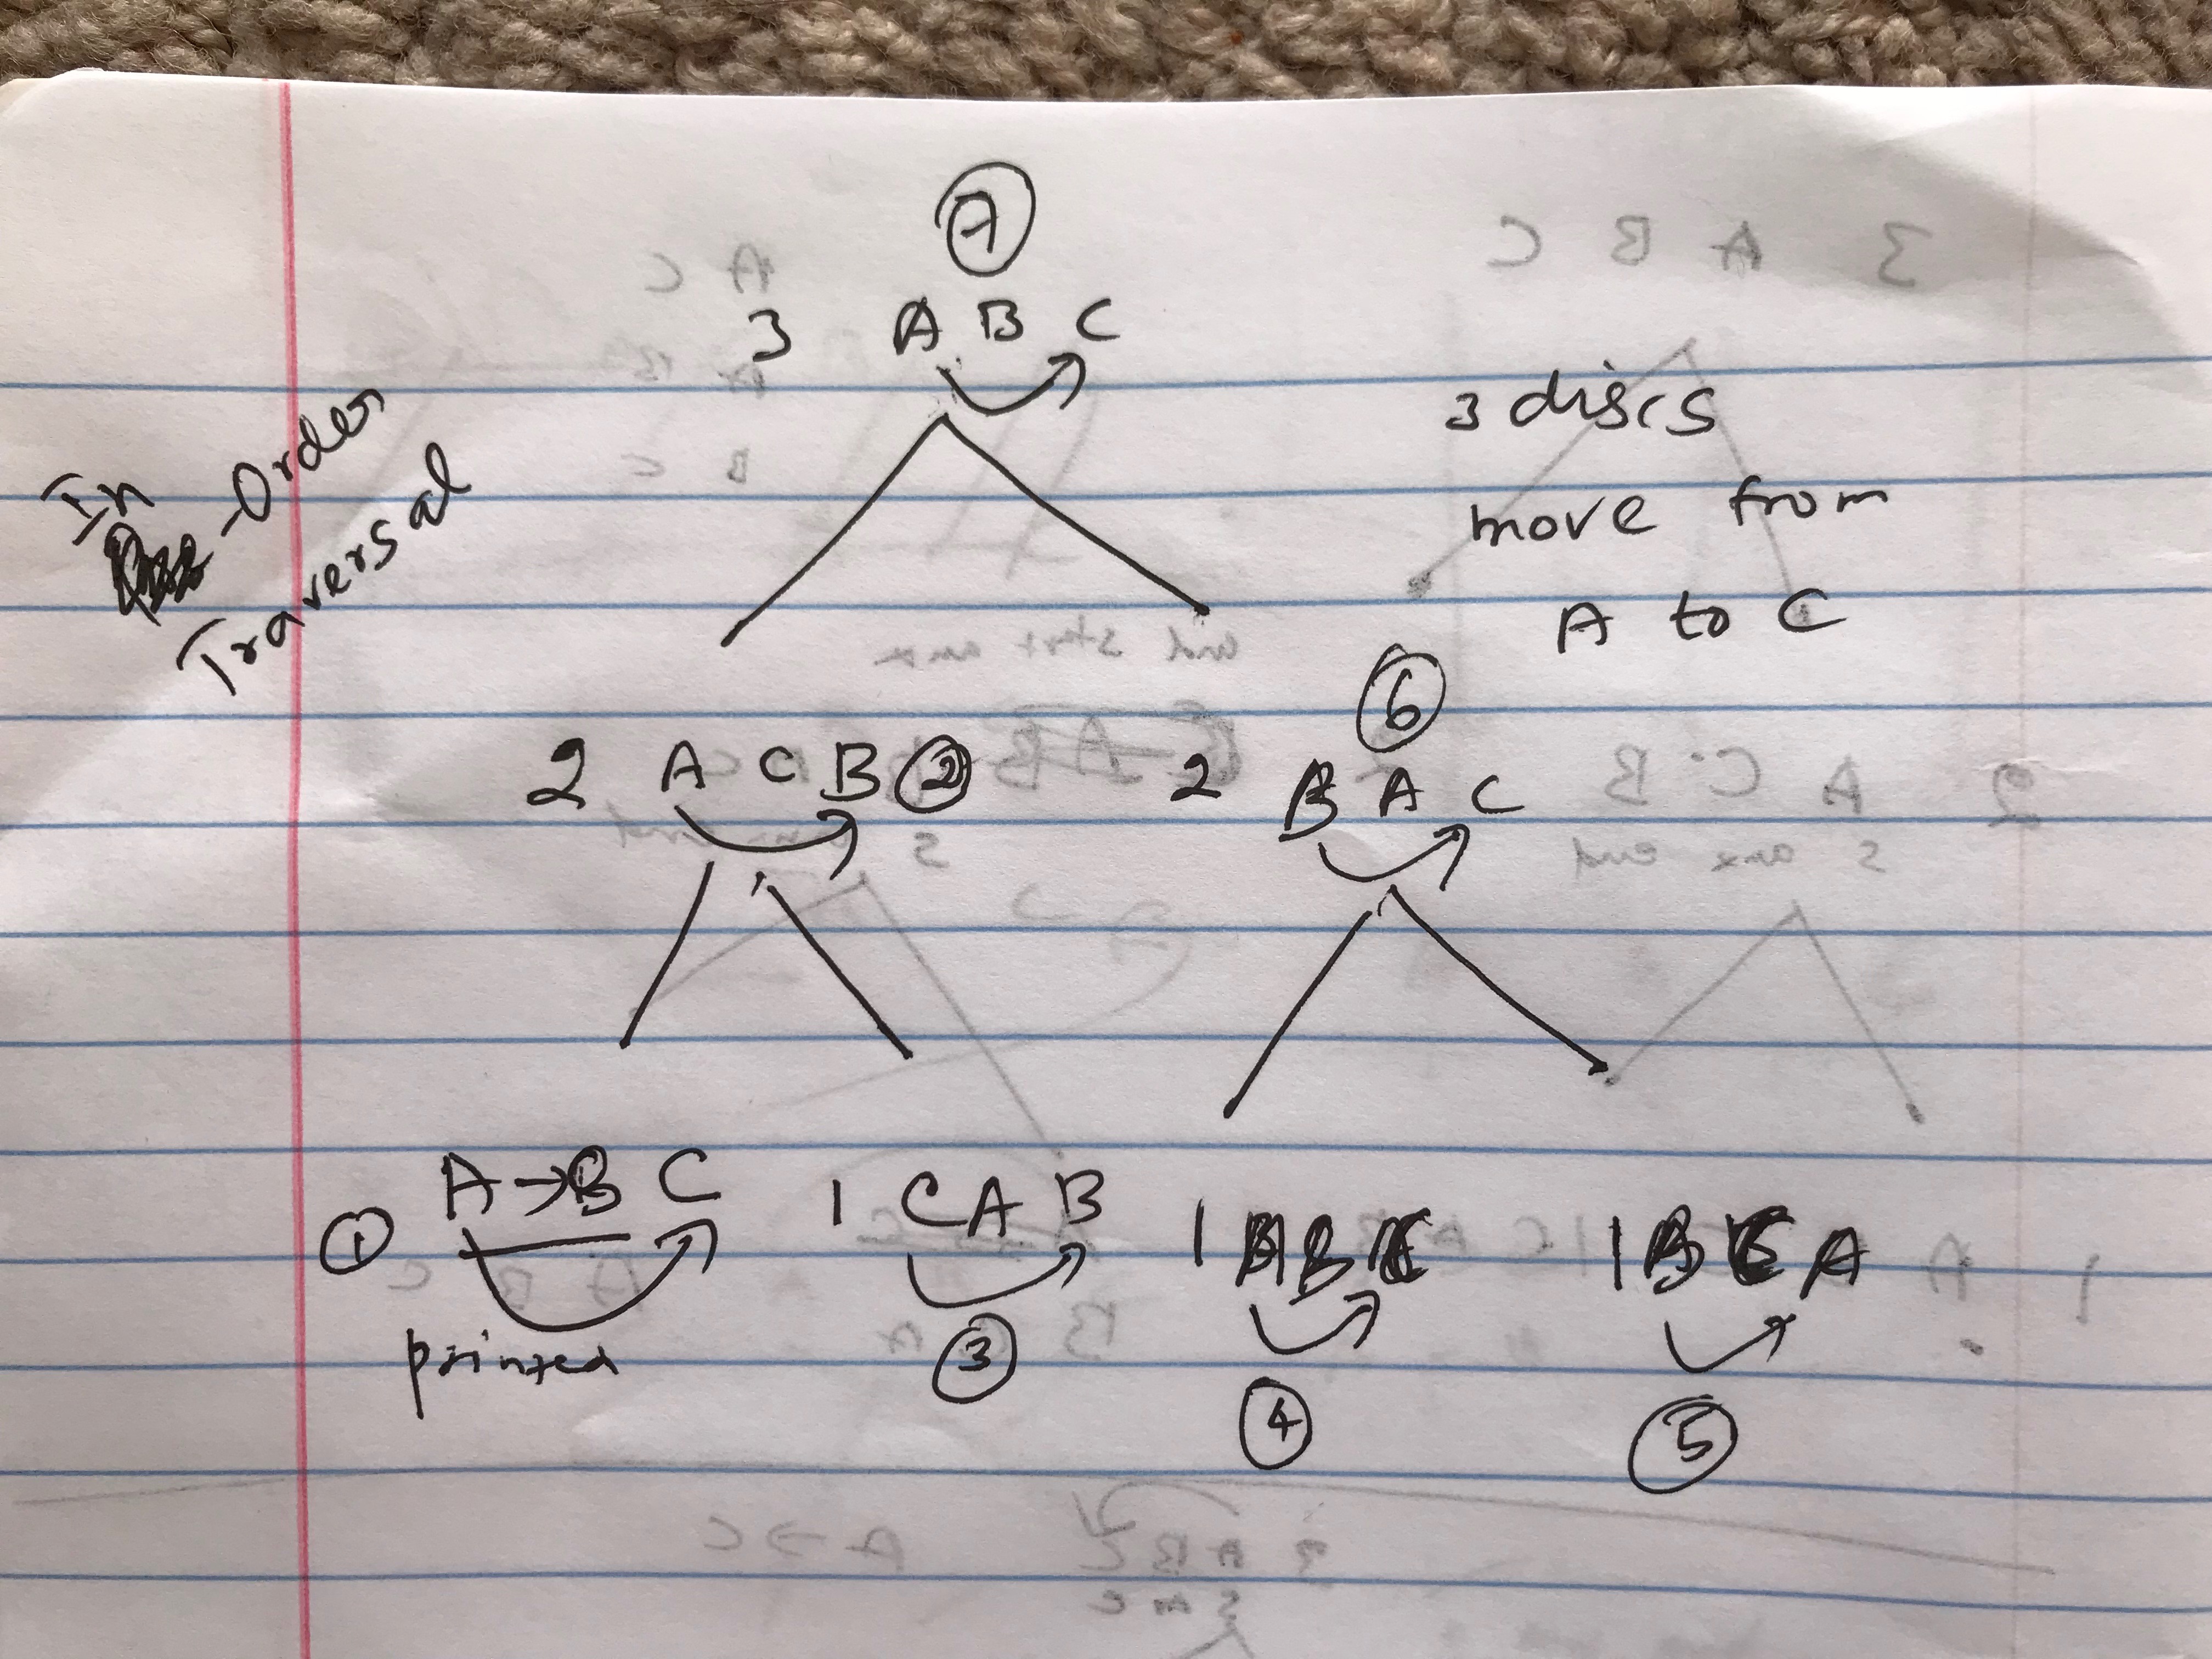 7
3 A B C
In -Order
Traversal
3 discs
move from
A to C
6
2 A C B 2
2 B A C
1 A→B C
printed
1 C A B
3
1 B
4
1 B C A
5